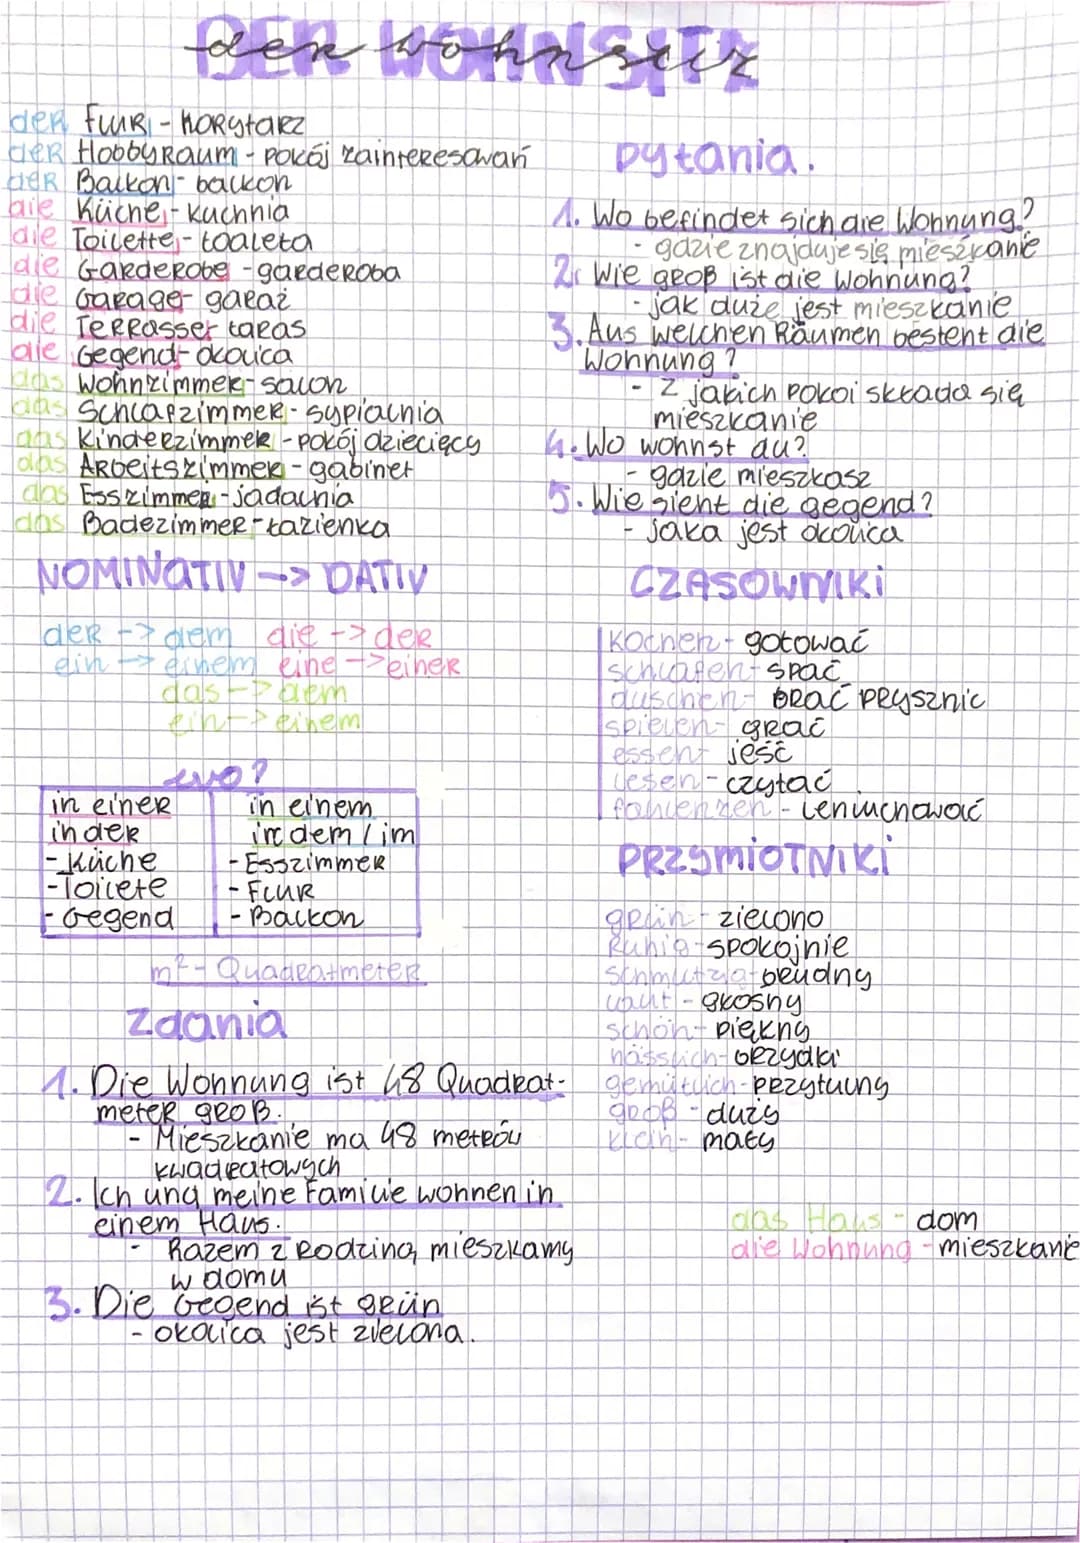 DER WOHNSITZ
der wohnsitz
der Flur - korytarz
der Hobbyraum - pokój zainteresowań
der Balkon - balkon
die Küche - kuchnia
die Toilette - toaleta
die Garderobe - garderoba
die Garage - garaż
die Terrasse - taras
die Gegend - okolica
das Wohnzimmer - salon
das Schlafzimmer - sypialnia
das Kinderzimmer - pokój dziecięcy
das Arbeitszimmer - gabinet
das Esszimmer - jadalnia
das Badezimmer - łazienka
NOMINATIV -> DATIV
der -> dem die -> der
ein -> einem eine -> einer
das -> dem
ein -> einem
wo?
in einer
in der
- Küche
- Toilete
- Gegend
in einem
in dem / im
- Esszimmer
- Flur
- Balkon
m² - Quadratmeter
Zdania
1. Die Wohnung ist 48 Quadrat-
meter groß.
- Mieszkanie ma 48 metrów
kwadratowych
2. Ich und meine Familie wohnen in
einem Haus.
- Razem z rodziną mieszkamy
w domu
3. Die Gegend ist grün
- okolica jest zielona.
pytania.
1. Wo befindet sich die Wohnung?
- gdzie znajduje się mieszkanie
2. Wie groß ist die Wohnung?
- jak duże jest mieszkanie
3. Aus welchen Räumen besteht die
Wohnung?
- Z jakich pokoi składa się
mieszkanie
4. Wo wohnst du?
- gdzie mieszkasz
5. Wie sieht die gegend?
- jaka jest okolica
CZASOWNIKI
kochen - gotować
schlafen - spać
duschen - brać prysznic
spielen - grać
essen - jeść
lesen - czytać
faulenzen - leniuchować
PRZYMIOTNIKI
grün - zielono
ruhig - spokojnie
schmutzig - brudny
laut - głośny
schön - piękny
hässlich - brzydki
gemütlich - przytulny
groß - duży
klein - mały
das Haus - dom
die Wohnung - mieszkanie